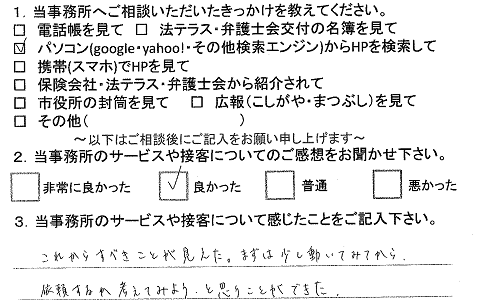 1. 当事務所へご相談いただいたきっかけを教えてください。
□ 電話帳を見て □ 法テラス・弁護士会交付の名簿を見て
☑ パソコン(google・yahoo!・その他検索エンジン)からHPを検索して
□ 携帯(スマホ)でHPを見て
□ 保険会社・法テラス・弁護士会から紹介されて
□ 市役所の封筒を見て □ 広報(こしがや・まつぶし)を見て
□ その他( )
～以下はご相談後にご記入をお願い申し上げます～
2. 当事務所のサービスや接客についてのご感想をお聞かせ下さい。
□ 非常に良かった ☑ 良かった □ 普通 □ 悪かった
3. 当事務所のサービスや接客について感じたことをご記入下さい。
これからすべきことが見えた。まずは少し動いてみてから、
依頼するか考えてみよう、と思うことができた。